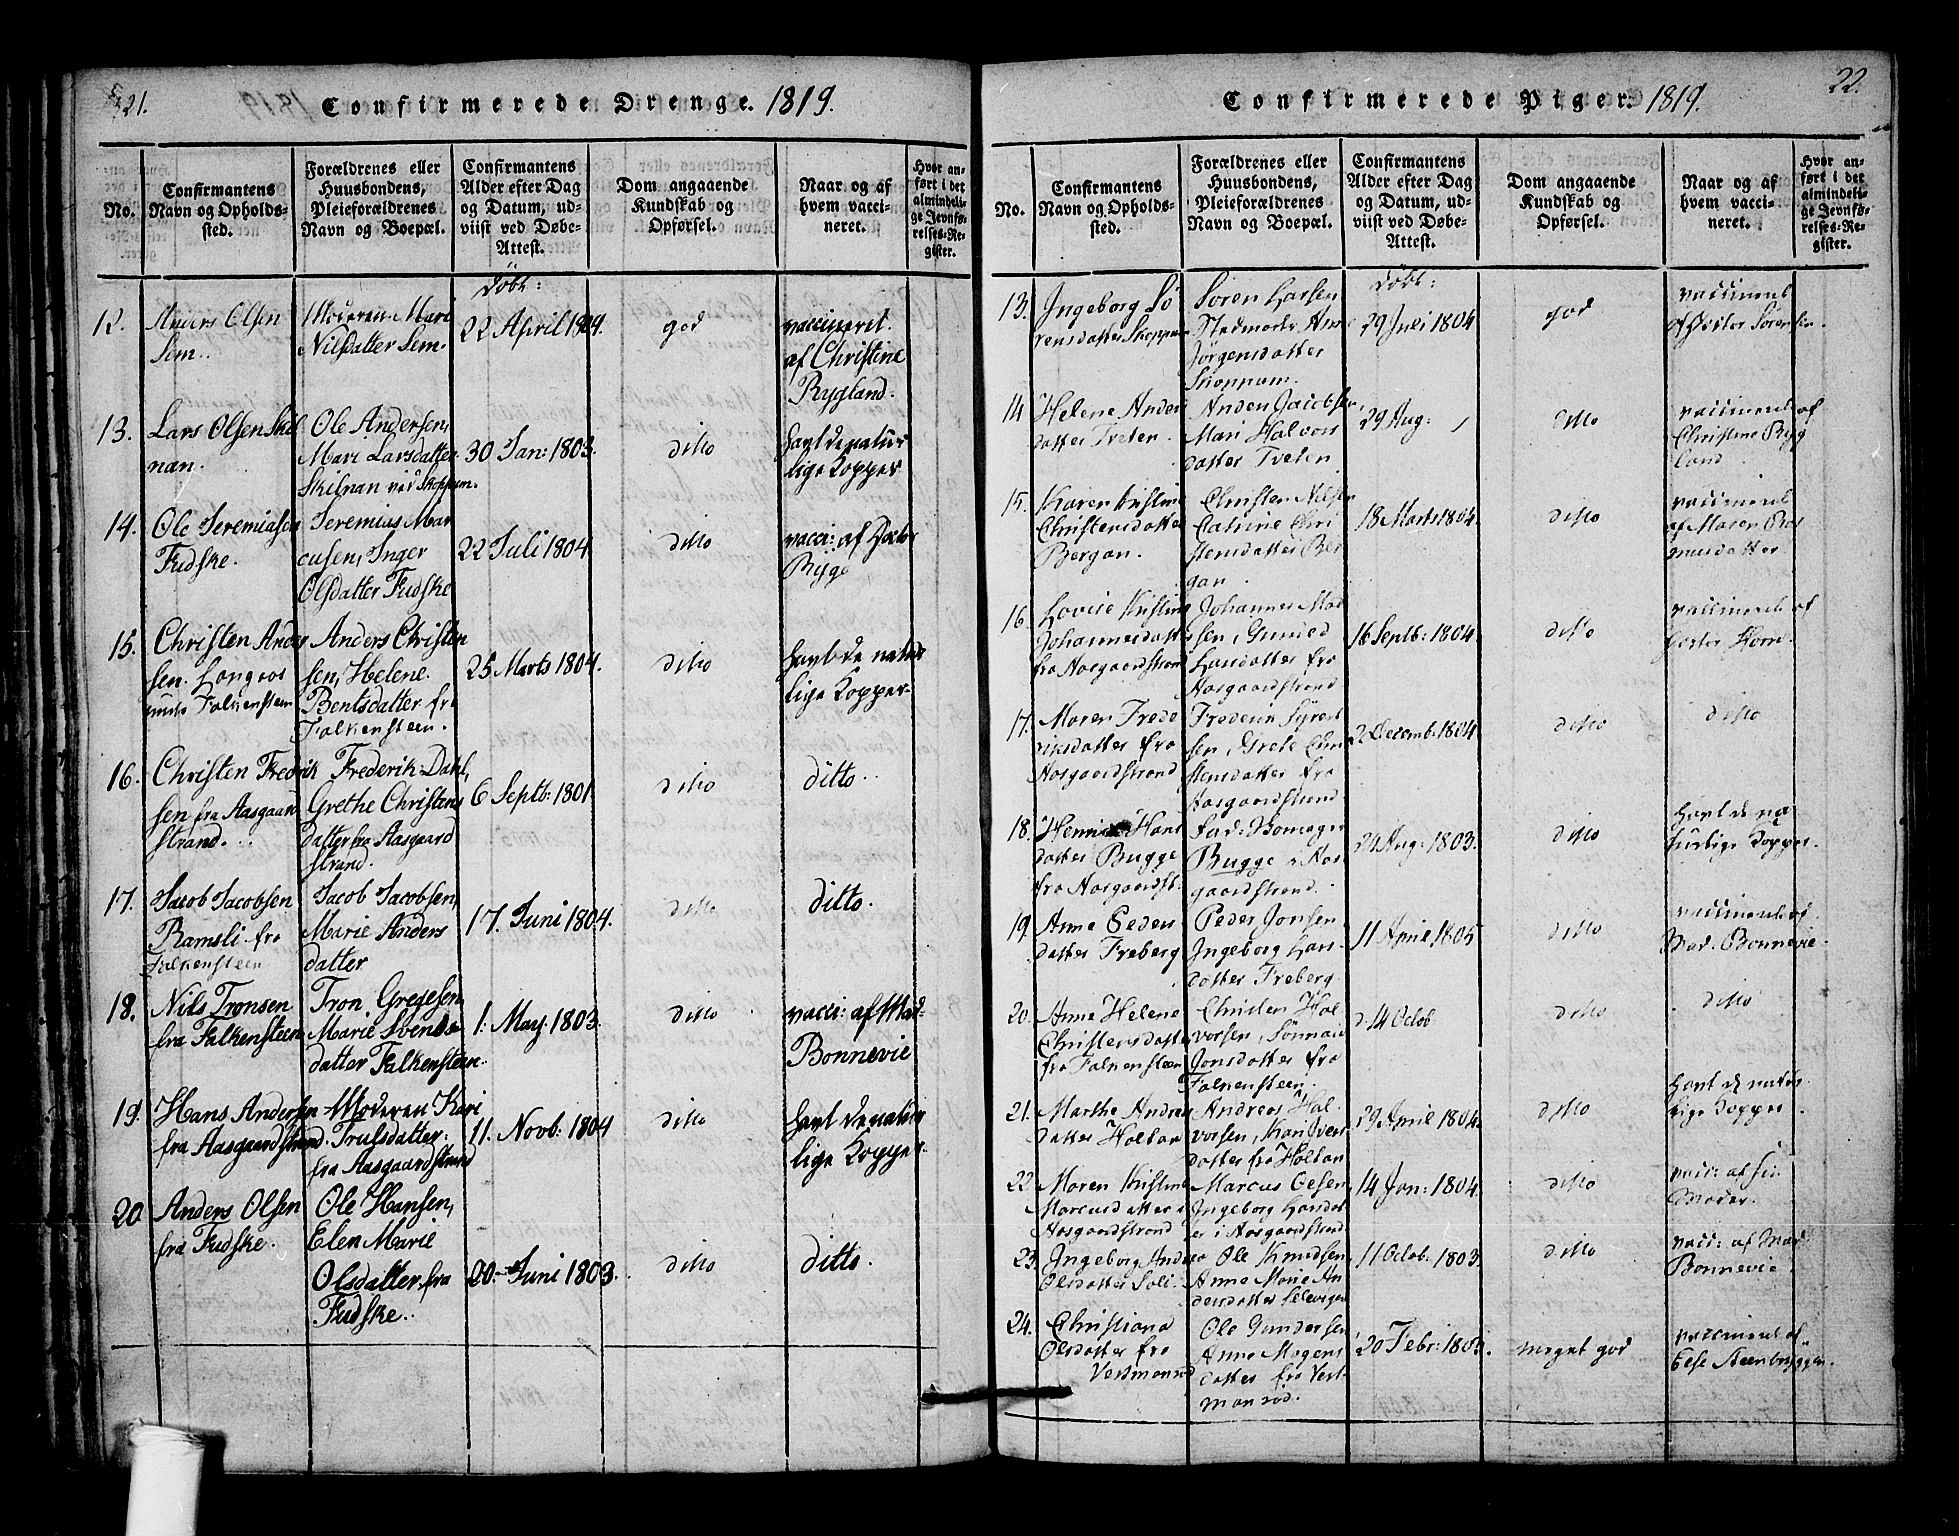 21.
Confirmerede Drenge. 1819.
No.
Confirmantens
Navn og Opholds-
sted.
Forældrenes eller
Huusbondens,
Pleieforældrenes
Navn og Boepæl.
Confirmantens
Alder efter Dag
og Datum, ud-
viist ved Døbe-
Attest.
Dom angaaende
Kundskab og
Opførsel.
Naar og af
hvem vacci-
neret.
Hvor an-
ført i det
almindeli-
ge Jevnfø-
relses-Re-
gister.
døbt:
12.
Anders Olsen
Sem.
Moderen Mari
Nilsdatter Sem.
22 April 1804.
god
vaccineret
af Christine
Rygland.
13.
Lars Olsen Skil
nan.
Ole Andersen,
Mari Larsdatter
Skilnan ved Skoppum.
30 Jan: 1803.
ditto
havt de natur
lige Kopper
14.
Ole Jeremiasen
Fudske.
Jeremias Mar
cusen, Inger
Olsdatter Fudske
22 Juli 1804.
ditto
vacci: af
15.
Christen Ander
sen
Falkensteen
Anders Christen
sen, Helene
Bentsdatter fr
Falkensteen.
25 Marts 1804.
ditto
havt de natur
lige Kopper
16.
Christen Fredrik
sen fra Aasgaard
strand.
Frederik Dahl,
Grethe Christens
datter fra Aasgaard
strand.
6 Septb: 1801.
ditto
ditto
17.
Jacob Jacobsen
Ramsli fra
Falkensteen
Jacob Jacobsen,
Marie Anders
datter
17. Juni 1804.
ditto
ditto.
18.
Nils Tronsen
fra Falkensteen
Tron Gregesen
Marie Svends
datter Falkensteen.
1. May. 1803.
ditto
vacci: af Mad.
Bonnevie
19.
Hans Andersen
fra Aasgaardstrand
Moderen Kari
Trulsdatter
fra Aasgaardstrand
11. Novb: 1804
ditto
havt de natur
lige Kopper.
20
Anders Olsen
fra Fudske.
Ole Hansen,
Elen Marie
Olsdatter fra
Fudske.
20. Juni 1803.
ditto
ditto.
22.
Confirmerede Piger. 1819.
No.
Confirmantens
Navn og Opholds-
sted.
Forældrenes eller
Huusbondens,
Pleieforældrenes
Navn og Boepæl.
Confirmantens
Alder efter Dag
og Datum, ud-
viist ved Døbe-
Attest.
Dom angaaende
Kundskab og
Opførsel.
Naar og af
hvem vacci-
neret.
Hvor an-
ført i det
almindeli-
ge Jevnfø-
relses-Re-
gister.
døbt:
13.
Ingeborg Sö
rensdatter Skoppum
Sören Larsen
Stedmoder Anne
Jörgensdatter
Skoppum.
29 Juli 1804
god
vaccineret
af Sörensen.
14
Helene Anders
datter Tveten.
Anders Jacobsen,
Mari Halvors
datter Tveten
29 Aug:
ditto
vaccineret af
Christine Ryg
land.
15.
Karen Kristine
Christensdatter
Bergan.
Christen Nilsen
Catrine Chri
stensdatter Ber
gan.
18 Marts 1804.
ditto
vaccineret
af Maren
16.
Lovise Kristine
Johannesdatter
fra Aasgaardstrand
Johannes Mad
sen, Gunild
Larsdatter fra
Aasgaardstrand
16 Septb: 1804.
ditto
vaccineret af
17.
Maren Frede
riksdatter fra
Aasgaardstrand
Frederik Syvert
sen, Grete Chri
stensdatter fra
Aasgaardstrand
2 Decemb: 1804
ditto
ditto
18.
Hans
datter Bugge
fra Aasgaardst.
Bugge
gaardstrand.
24 Aug: 1803.
ditto
havt de na
turlige Kopper.
19.
Anne Peders
datter Freberg
Peder Jonsen
Ingeborg Lars
datter Freberg
11 April 1805
ditto
vaccineret af
Mad. Bonnevie.
20.
Anne Helene
Christensdatter
fra Falkensteen
Christen Hal
vorsen,
Jonsdatter fra
Falkensteen.
14 Octob
ditto
ditto
21.
Marthe Andreas
datter Holtan
Andreas Hal-
vorsen, Kari Ivers
datter fra Holtan
29 April 1804.
ditto
havt de natur
lige Kopper.
22.
Maren Kristine
Marcusdatter i
Aasgaardstrand
Marcus Olsen
Ingeborg Hansdat
er i Aasgaardstrand
14 Jan: 1804.
ditto
vacc: af sin
Moder.
23.
Ingeborg Andrea
Olesdatter
Ole Knudsen
Anne Marie An
dersdatter
11 Octob. 1803.
ditto
vacc: af Mad
Bonnevie
24.
Christiana
Olsdatter fra
Ole Gundersen
Anne Mogens
datter fra Vest
manröd.
20 Febr:
meget god
vaccineret af